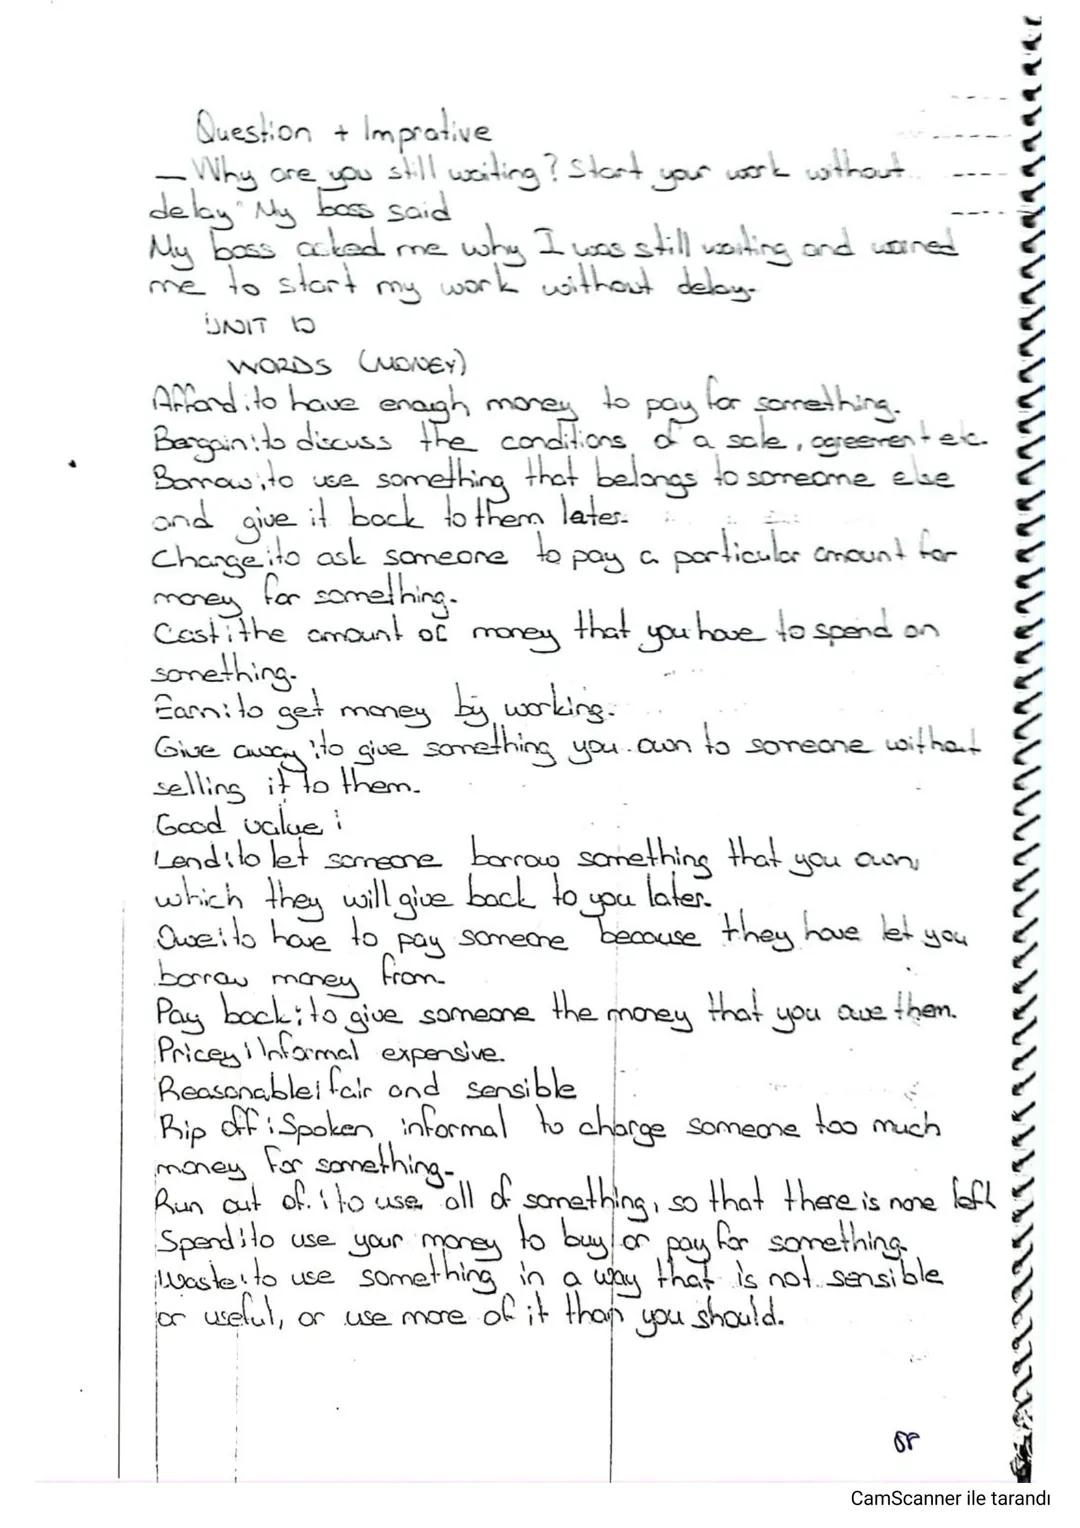 Question + Imprative
— Why are you still waiting? Start your work without
delay" My boss said
My boss asked me why I was still waiting and warned
me to start my work without delay.
UNIT 10
WORDS (MONEY)
Afford: to have enough money to pay for something.
Bargain: to discuss the conditions of a sale, agreement etc.
Borrow: to use something that belongs to someone else
and give it back to them later.
Change: to ask someone to pay a particular amount for
money for something.
Cost: the amount of money that you have to spend on
something.
Earn: to get money by working.
Give away: to give something you own to someone without
selling it to them.
Good value:
Lend: to let someone borrow something that you own,
which they will give back to you later.
Owe: to have to pay someone because they have let you
borrow money from.
Pay back: to give someone the money that you owe them.
Pricey: Informal expensive.
Reasonable: fair and sensible
Rip off: Spoken informal to charge someone too much
money for something.
Run out of: to use all of something, so that there is none left
Spend: to use your money to buy or pay for something.
Waste: to use something in a way that is not sensible
or useful, or use more of it than you should.
CamScanner ile tarandı